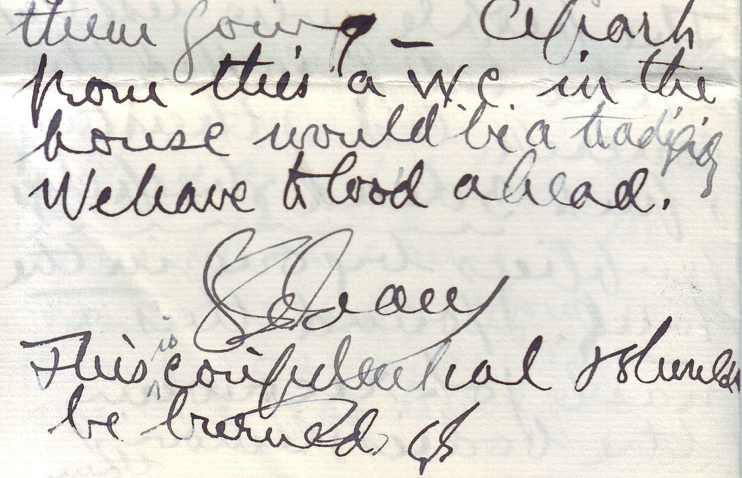 them going – Apart
from this a WC in the
house would be a tradgidy
We have to look ahead.
This is confidential & should
be burned.